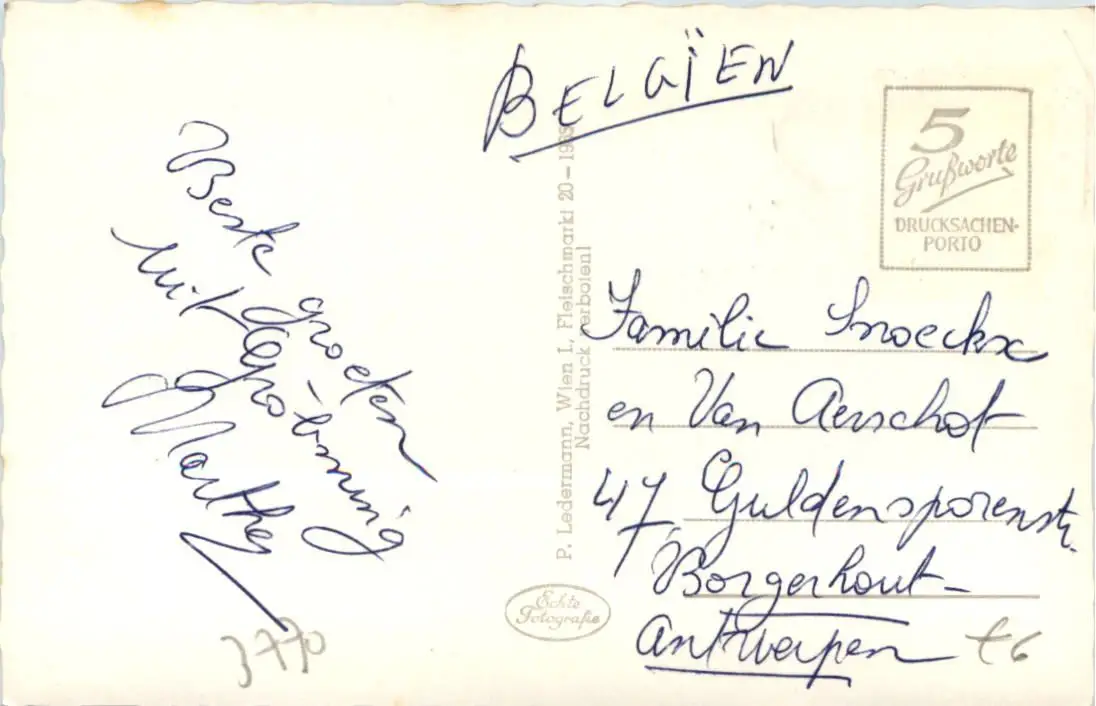 BELGÏEN
5
Grußworte
DRUCKSACHEN-
PORTO
Beste groeten
uit Gröbming
Marthe
P. Ledermann, Wien I., Fleischmarkt 20 – 1969
Nachdruck verboten!
Familie Snoeckx
en Van Aerschot
47, Guldensporenstr.
Borgerhout-
Antwerpen
Echte
Fotografie
3770
£6